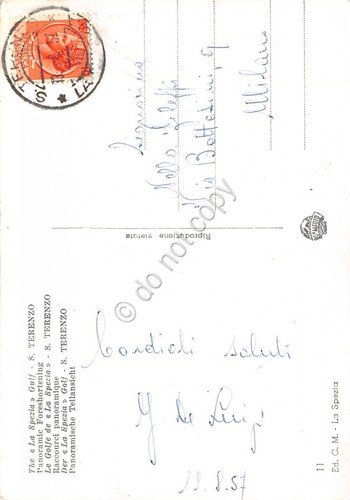 The « La Spezia » Gulf - S. TERENZO
Panoramic Foreshortening
Le Golfe de « La Spezia » - S. TERENZO
Raccourci panoramique
Der « La Spezia » Golf - S. TERENZO
Panoramische Teilansicht
Cordiali saluti
11.8.57
Riproduzione vietata
Signorina
Nella
Via Bottesini, 9
Milano
11
Ed. C. M. - La Spezia
S. TERENZO
do not copy